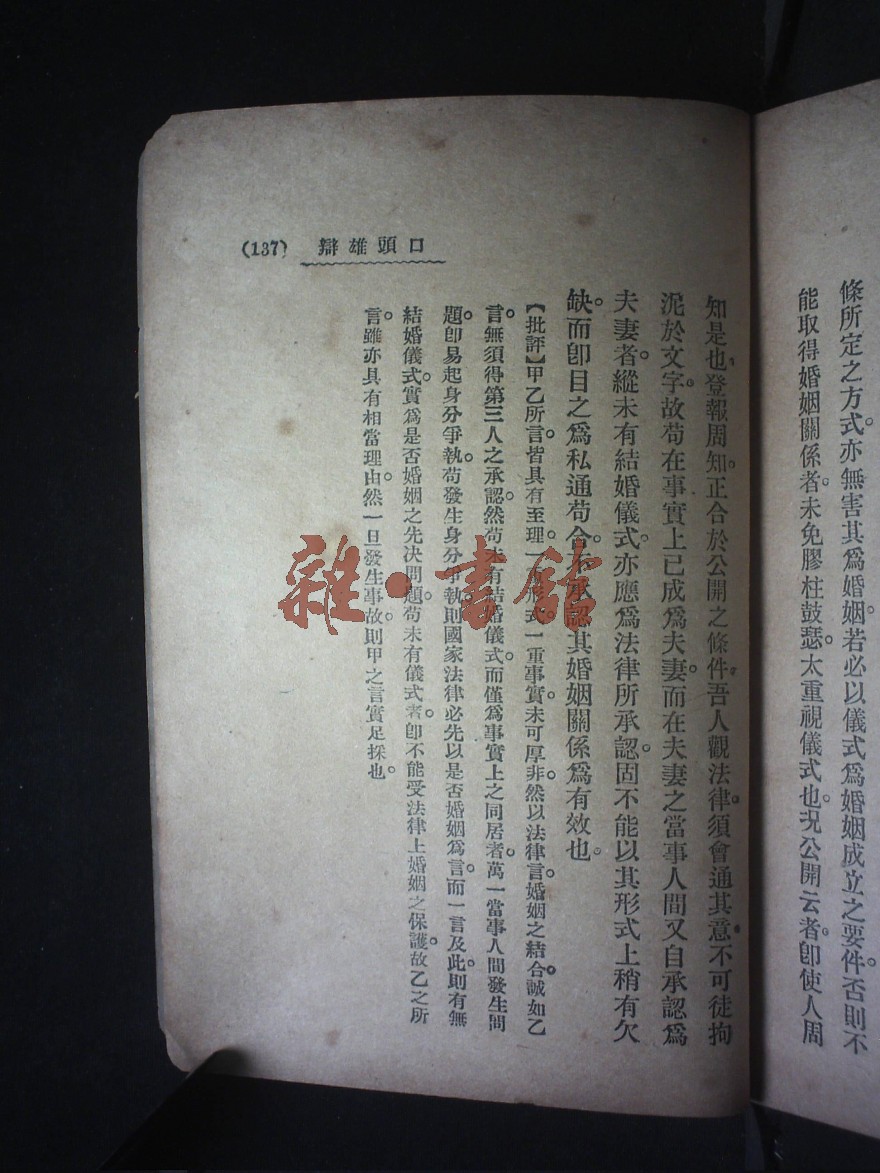 條所定之方式。亦無害其爲婚姻。若必以儀式爲婚姻成立之要件。否則不
能取得婚姻關係者。未免膠柱鼓瑟。太重視儀式也。况公開云者。卽使人周
口頭雄辯 (137)
知是也。登報周知。正合於公開之條件。吾人觀法律。須會通其意。不可徒拘
泥於文字。故苟在事實上已成爲夫妻。而在夫妻之當事人間又自承認爲
夫妻者。縱未有結婚儀式。亦應爲法律所承認。固不能以其形式上稍有欠
缺。而卽目之爲私通苟合。不承認其婚姻關係爲有效也。
【批評】甲乙所言。皆具有至理。一重形式。一重事實。未可厚非。然以法律言。婚姻之結合。誠如乙
言。無須得第三人之承認。然苟未有結婚儀式。而僅爲事實上之同居者。萬一當事人間發生問
題。卽易起身分爭執。苟發生身分爭執。則國家法律必先以是否婚姻爲言。而一言及此。則有無
結婚儀式。實爲是否婚姻之先决問題。苟未有儀式者。卽不能受法律上婚姻之保護。故乙之所
言。雖亦具有相當理由。然一旦發生事故。則甲之言實足採也。
雜·書館